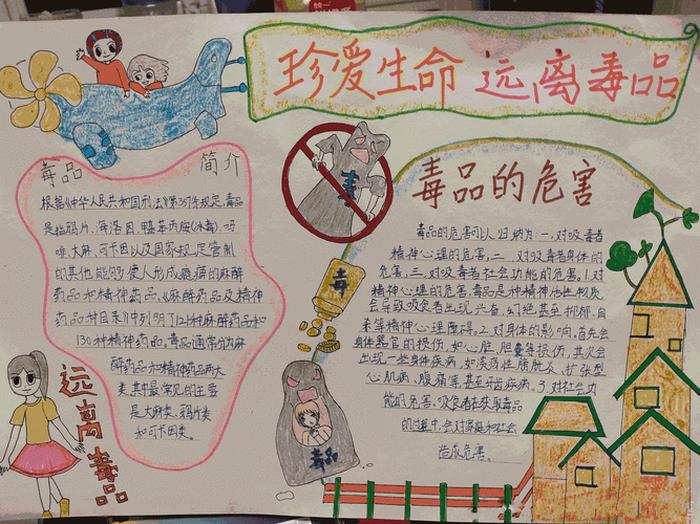 珍爱生命 远离毒品
毒品 简介
根据《中华人民共和国刑法》第357条规定,毒品
是指鸦片、海洛因、甲基苯丙胺(冰毒)、吗
啡、大麻、可卡因以及国家规定管制
的其他能够使人形成瘾癖的麻醉
药品和精神药品。《麻醉药品及精神
药品品种目录》中列明了121种麻醉药品和
130种精神药品。毒品通常分为麻
醉药品和精神药品两大
类。其中最常见的主要
是大麻类、鸦片类
和可卡因类。
远离毒品
毒
毒
毒品
毒品的危害
毒品的危害可以归纳为:一、对吸毒者
精神心理的危害,二、对吸毒者身体的
危害,三、对吸毒者社会功能的危害。1.对
精神心理的危害,毒品是种精神活性物质
会导致吸食者出现兴奋、幻绝甚至抑郁、自
杀等精神心理障碍。2.对身体的影响,首先会
身体器官的损伤,如心脏、胆囊等损伤,其次会
出现一些身体疾病,如溃疡性膀胱炎、扩张型
心肌病、腹痛等甚至牙齿疾病。3.对社会功
能的危害,吸食者在获取毒品
的过程中,会对家庭和社会
造成危害。